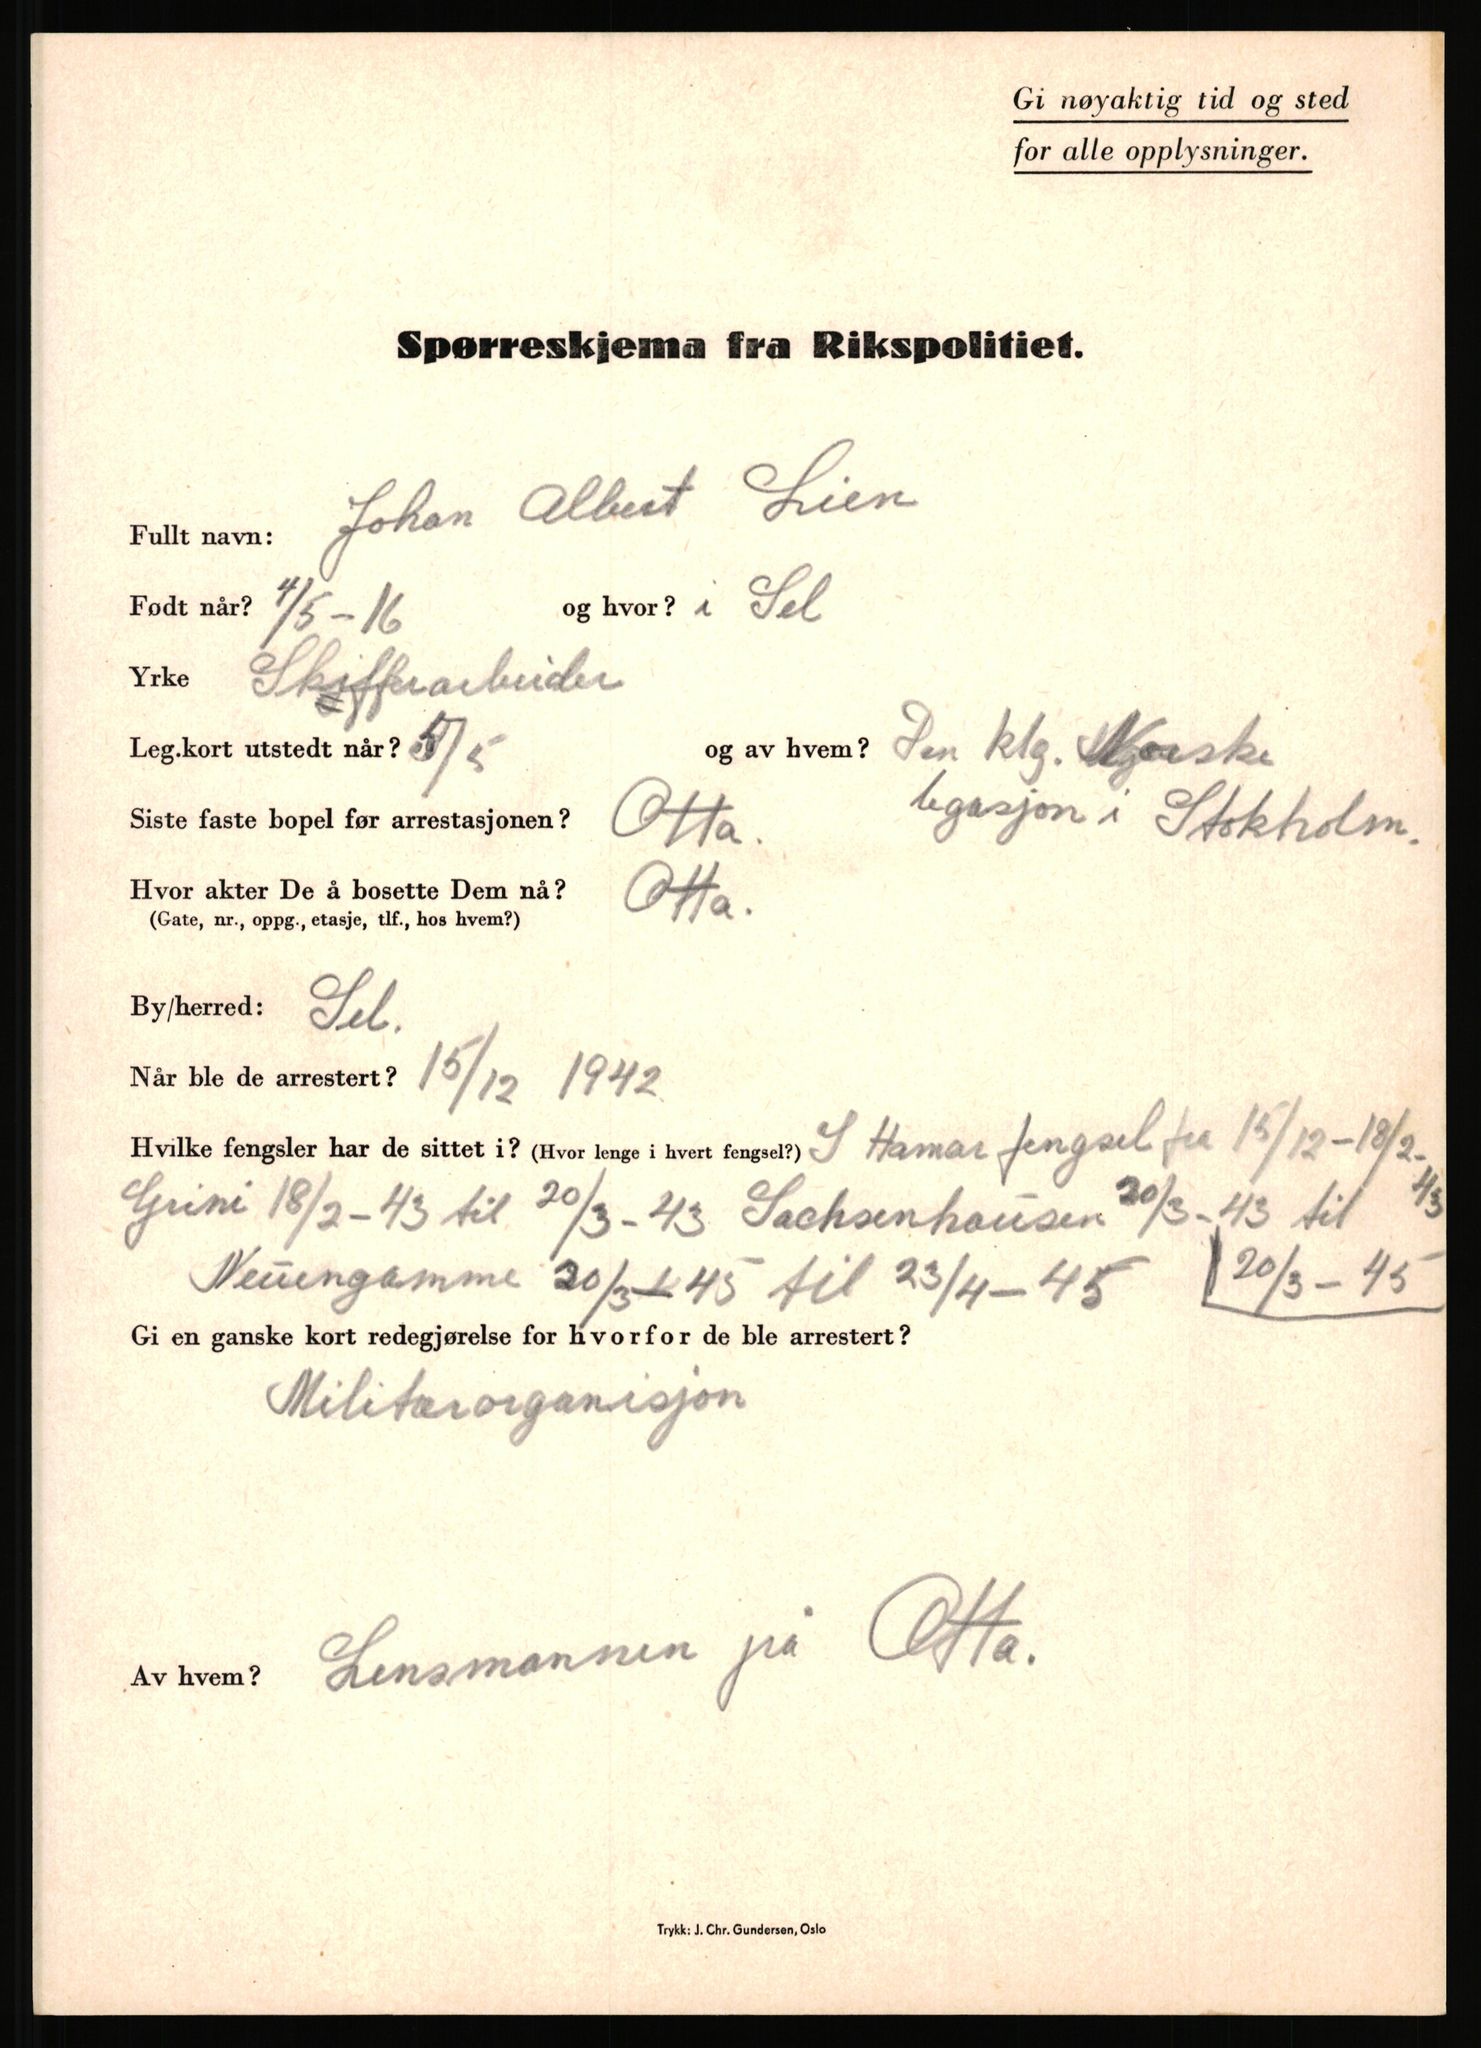 Gi nøyaktig tid og sted
for alle opplysninger.
Spørreskjema fra Rikspolitiet.
Fullt navn: Johan Albert Lien
Født når? 4/5-16 og hvor? i Sel
Yrke Skifferarbeider
Leg.kort utstedt når? 5/5 og av hvem? Den klg. Norske
legasjon i Stokholm.
Siste faste bopel før arrestasjonen? Otta.
Hvor akter De å bosette Dem nå? Otta.
(Gate, nr., oppg., etasje, tlf., hos hvem?)
By/herred: Sel.
Når ble de arrestert? 15/12 1942
Hvilke fengsler har de sittet i? (Hvor lenge i hvert fengsel?) I Hamar fengsel fra 15/12-18/2-43
Grini 18/2-43 til 20/3-43 Sachsenhausen 20/3-43 til
20/3-45
Neuengamme 20/3-45 til 23/4-45
Gi en ganske kort redegjørelse for hvorfor de ble arrestert?
Militærorganisjon
Av hvem? Lensmannen på Otta.
Trykk: J. Chr. Gundersen, Oslo